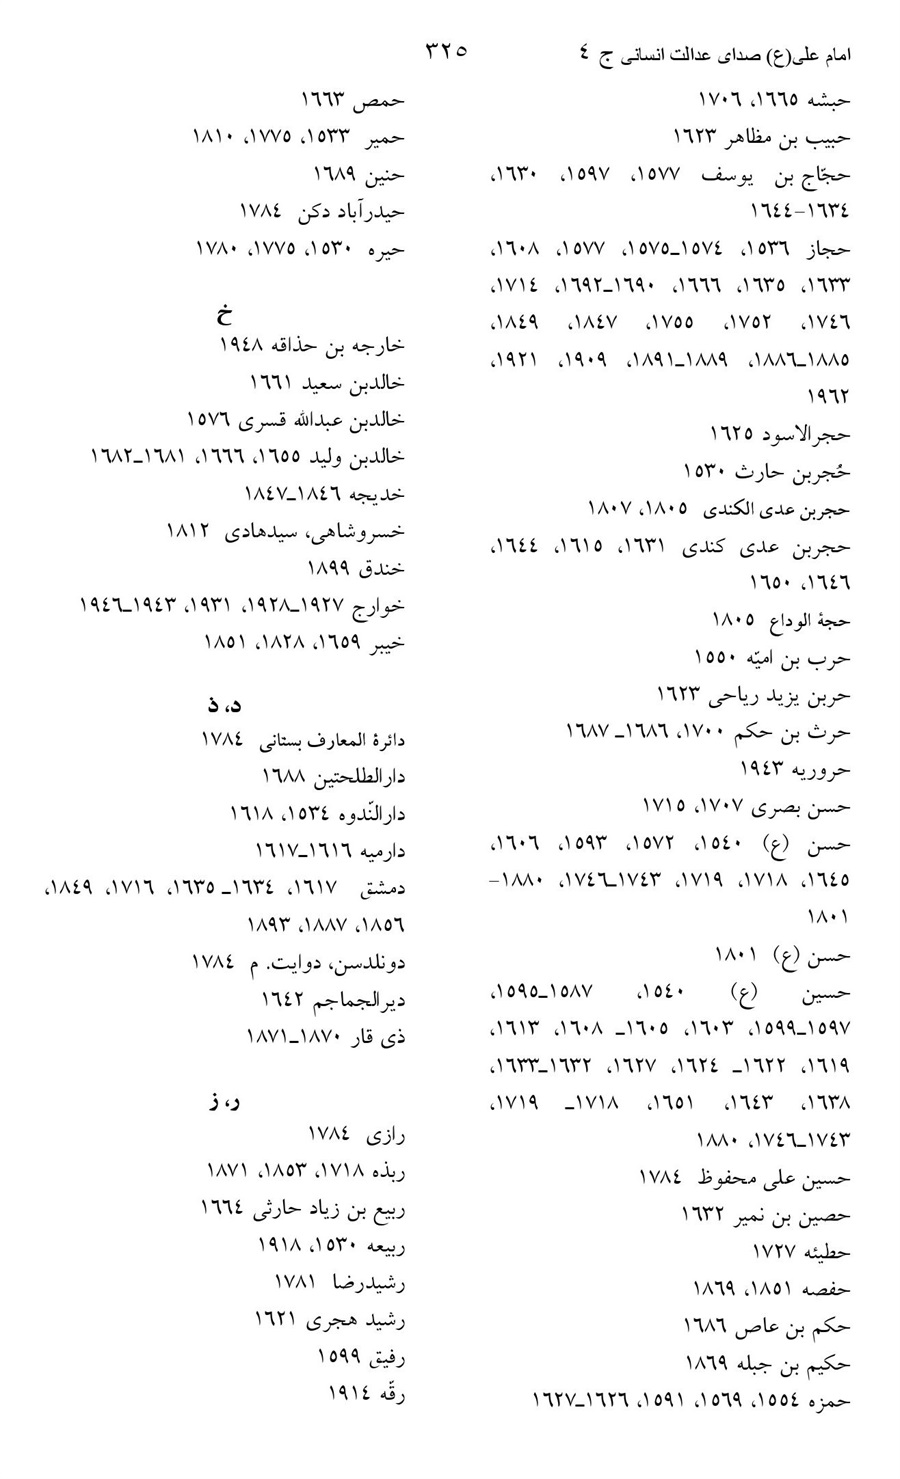 امام علی(ع) صدای عدالت انسانی ج ٤
٣٢٥
حبشه ١٦٦٥، ١٧٠٦
حبیب بن مظاهر ١٦٢٣
حجّاج بن یوسف ١٥٧٧، ١٥٩٧، ١٦٣٠،
١٦٣٤–١٦٤٤
حجاز ١٥٣٦، ١٥٧٤ـ١٥٧٥، ١٥٧٧، ١٦٠٨،
١٦٣٣، ١٦٣٥، ١٦٦٦، ١٦٩٠ـ١٦٩٢، ١٧١٤،
١٧٤٦، ١٧٥٢، ١٧٥٥، ١٨٤٧، ١٨٤٩،
١٨٨٥ـ١٨٨٦، ١٨٨٩ـ١٨٩١، ١٩٠٩، ١٩٢١،
١٩٦٢
حجرالاسود ١٦٢٥
حُجربن حارث ١٥٣٠
حجربن عدی الکندی ١٨٠٥، ١٨٠٧
حجربن عدی کندی ١٦٣١، ١٦١٥، ١٦٤٤،
١٦٤٦، ١٦٥٠
حجة الوداع ١٨٠٥
حرب بن امیّه ١٥٥٠
حربن یزید ریاحی ١٦٢٣
حرث بن حکم ١٧٠٠، ١٦٨٦ـ ١٦٨٧
حروریه ١٩٤٣
حسن بصری ١٧٠٧، ١٧١٥
حسن (ع) ١٥٤٠، ١٥٧٢، ١٥٩٣، ١٦٠٦،
١٦٤٥، ١٧١٨، ١٧١٩، ١٧٤٣ـ١٧٤٦، ١٨٨٠–
١٨٠١
حسن (ع) ١٨٠١
حسین (ع) ١٥٤٠، ١٥٨٧ـ١٥٩٥،
١٥٩٧ـ١٥٩٩، ١٦٠٣، ١٦٠٥ـ ١٦٠٨، ١٦١٣،
١٦١٩، ١٦٢٢ـ ١٦٢٤، ١٦٢٧، ١٦٣٢ـ١٦٣٣،
١٦٣٨، ١٦٤٣، ١٦٥١، ١٧١٨ـ ١٧١٩،
١٧٤٣ـ١٧٤٦، ١٨٨٠
حسین علی محفوظ ١٧٨٤
حصین بن نمیر ١٦٣٢
حطیئه ١٧٢٧
حفصه ١٨٥١، ١٨٦٩
حکم بن عاص ١٦٨٦
حکیم بن جبله ١٨٦٩
حمزه ١٥٥٤، ١٥٦٩، ١٥٩١، ١٦٢٦ـ١٦٢٧
حمص ١٦٦٣
حمیر ١٥٣٣، ١٧٧٥، ١٨١٠
حنین ١٦٨٩
حیدرآباد دکن ١٧٨٤
حیره ١٥٣٠، ١٧٧٥، ١٧٨٠
خ
خارجه بن حذاقه ١٩٤٨
خالدبن سعید ١٦٦١
خالدبن عبدالله قسری ١٥٧٦
خالدبن ولید ١٦٥٥، ١٦٦٦، ١٦٨١ـ١٦٨٢
خدیجه ١٨٤٦ـ١٨٤٧
خسروشاهی، سیدهادی ١٨١٢
خندق ١٨٩٩
خوارج ١٩٢٧ـ١٩٢٨، ١٩٣١، ١٩٤٣ـ١٩٤٦
خیبر ١٦٥٩، ١٨٢٨، ١٨٥١
د، ذ
دائرة المعارف بستانی ١٧٨٤
دارالطلحتین ١٦٨٨
دارالنّدوه ١٥٣٤، ١٦١٨
دارمیه ١٦١٦ـ١٦١٧
دمشق ١٦١٧، ١٦٣٤ـ ١٦٣٥، ١٧١٦، ١٨٤٩،
١٨٥٦، ١٨٨٧، ١٨٩٣
دونلدسن، دوایت. م ١٧٨٤
دیرالجماجم ١٦٤٢
ذی قار ١٨٧٠ـ١٨٧١
ر، ز
رازی ١٧٨٤
ربذه ١٧١٨، ١٨٥٣، ١٨٧١
ربیع بن زیاد حارثی ١٦٦٤
ربیعه ١٥٣٠، ١٩١٨
رشیدرضا ١٧٨١
رشید هجری ١٦٢١
رفیق ١٥٩٩
رقّه ١٩١٤